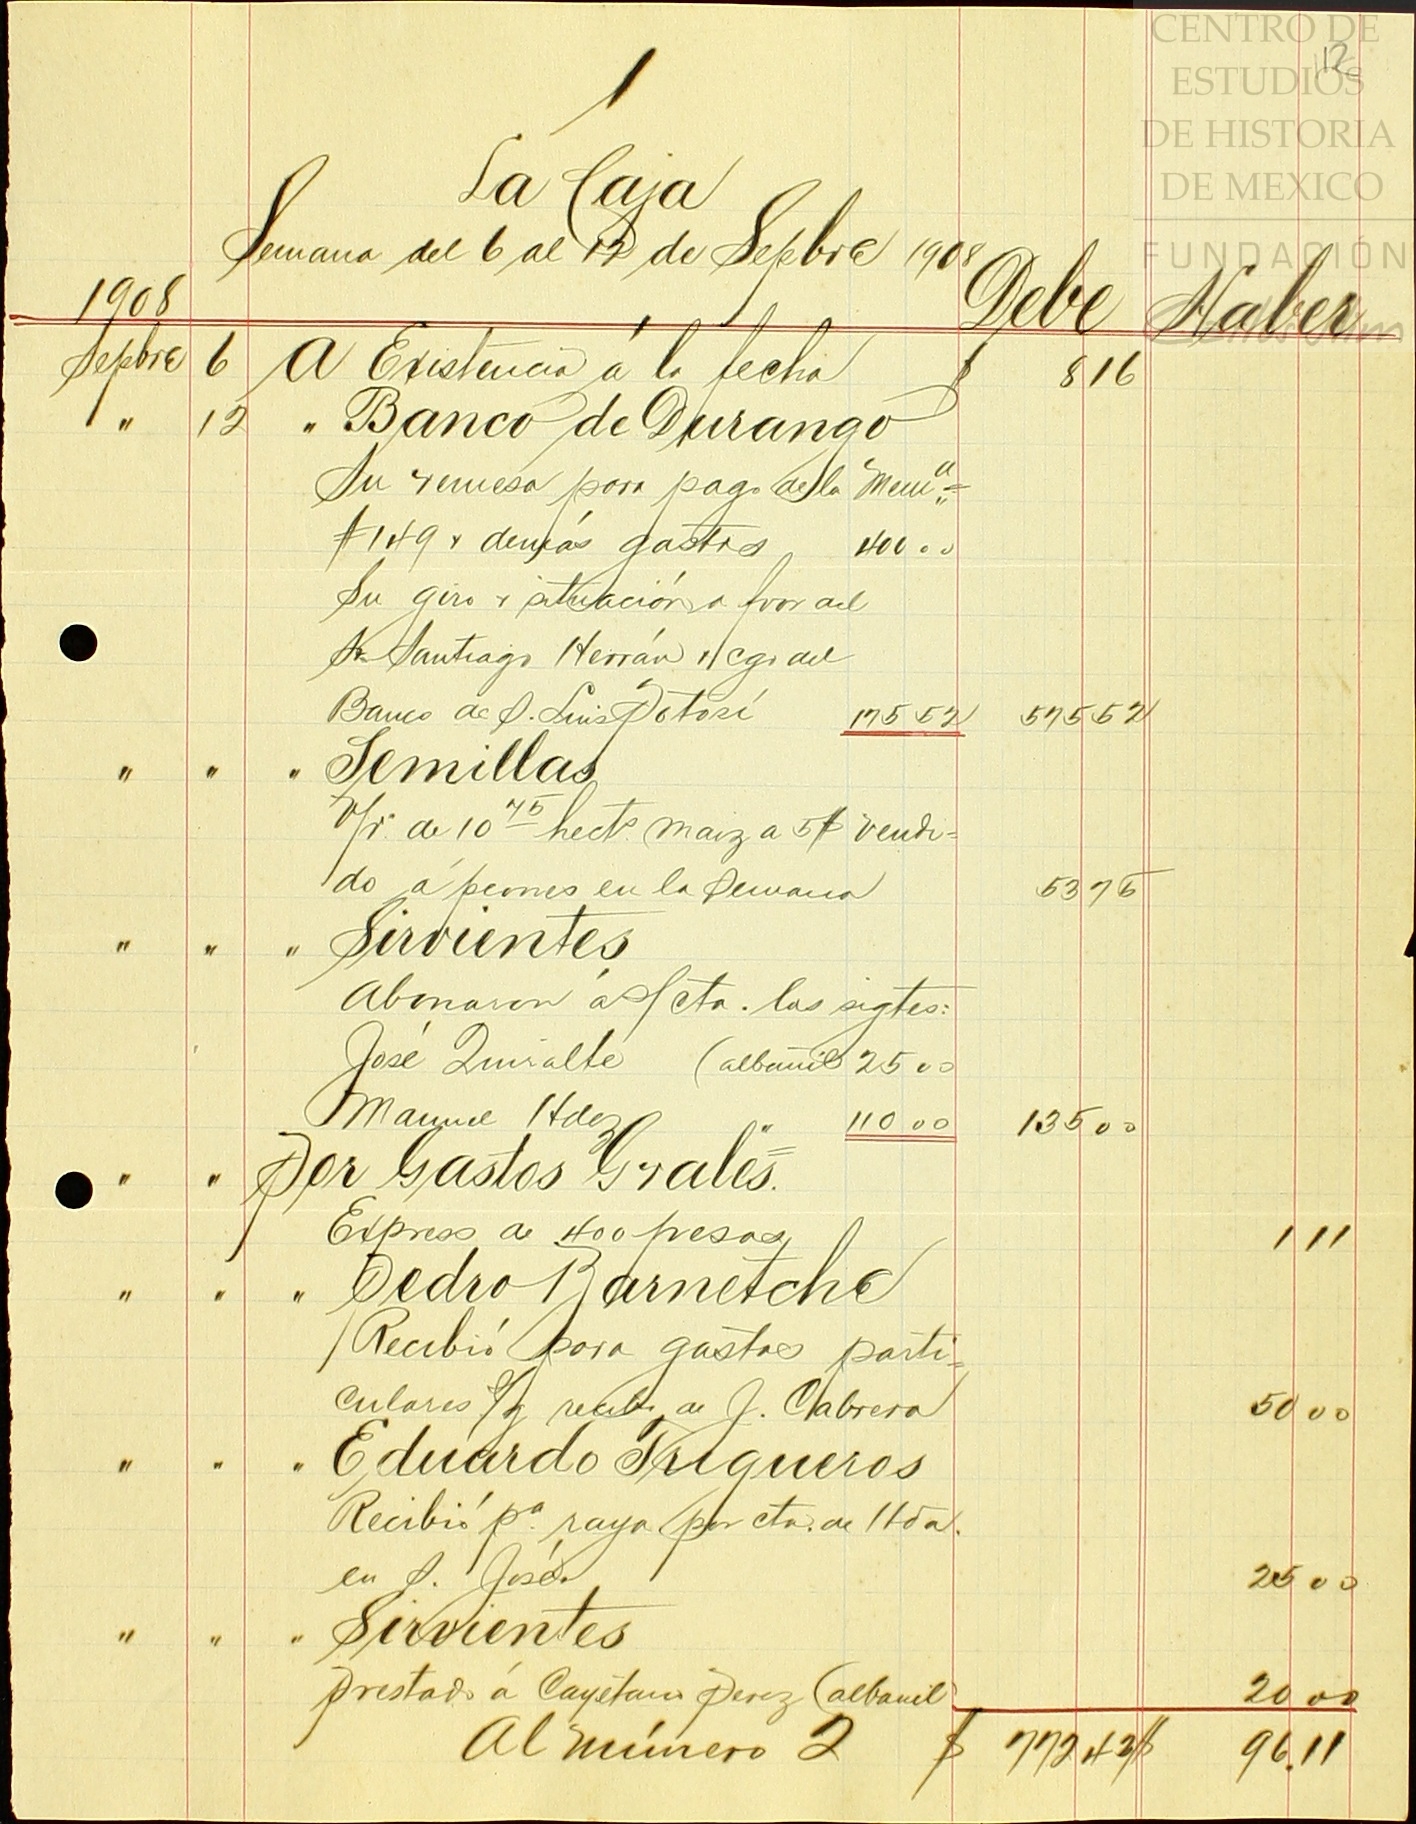 CENTRO DE
ESTUDIOS
DE HISTORIA
DE MEXICO
FUNDACIÓN
12
1
La Caja
Semana del 6 al 12 de Sepbre 1908
1908 Debe Haber
Sepbre 6 A Existencia á la fecha $ 8 16
" 12 " Banco de Durango
Su remesa para pago de la Mem.ª
#149 y demás gastos 400 00
Su giro y situación a fvor del
Sr Santiago Herrán cgo del
Banco de S. Luis Potosí 175 52 575 52
" " " Semillas
V/r. de 10 75 hects. maiz a 5$ vendi=
do á peones en la semana 53 75
" " " Sirvientes
Abonaron á s/ cta. los sigtes:
José Quiralte (albañil 25 00
Manuel Hdez " 110 00 135 00
" " Por Gastos Grales.
Express de 400 pesos 1 11
" " " Pedro Barnetche
Recibió para gastos parti=
culares s/g recibo de J. Cabrera 50 00
" " " Eduardo Trigueros
Recibió pª raya por cta. de Hda.
en S. José. 25 00
" " " Sirvientes
Prestado á Cayetano Perez (albañil 20 00
Al número 2 $ 772 43 $ 96.11